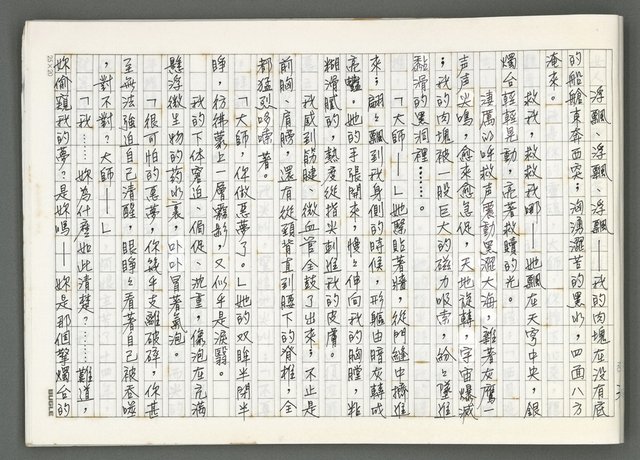 浮飄、浮飄、浮飄——我的肉塊在沒有底
的船艙東奔西突；洶湧澀苦的黑水，四面八方
淹來。
救我，救救我哪——她飄在天穹中央，銀
燭台輕輕晃動，亮著救贖的光。
淒厲的呼救聲震動黑潮大海，雜著灰鷹一
声声尖鳴，愈來愈急促，天地旋轉，宇宙爆滅
；我的肉塊被一股巨大的磁力吸索，紛紛墜進
黏滑的黑洞裡……。
「大師——」她緊貼著牆，從門縫中擠進
來；翩翩飄到我身側的時候，形軀由暗灰轉成
亮。她的手張開來，慢慢伸向我的胸膛，粘
糊滑膩的，熱度從指尖刺進我的皮膚。
我感到筋腱、微血管全鼓了出來；不止是
前胸、肩膀，還有從頸背直到腰下的脊椎，全
都猛烈哆嗦著。
「大師，你做惡夢了。」她的双眸半開半
睜，彷彿蒙上一層霧影，又似乎是淚翳。
我的下体窘迫、侷促、沈重，像泡在充滿
懸浮微生物的药水裏，卟卟冒著氣泡。
「很可怕的惡夢，你幾乎支離破碎，你甚
至無法強迫自己清醒，眼睜睜看著自己被吞噬
，對不對？大師——」
「我……妳為什麼如此清楚？……難道，
妳偷窺我的夢？是妳嗎——妳是那個擎燭台的
25×20
BUGLE